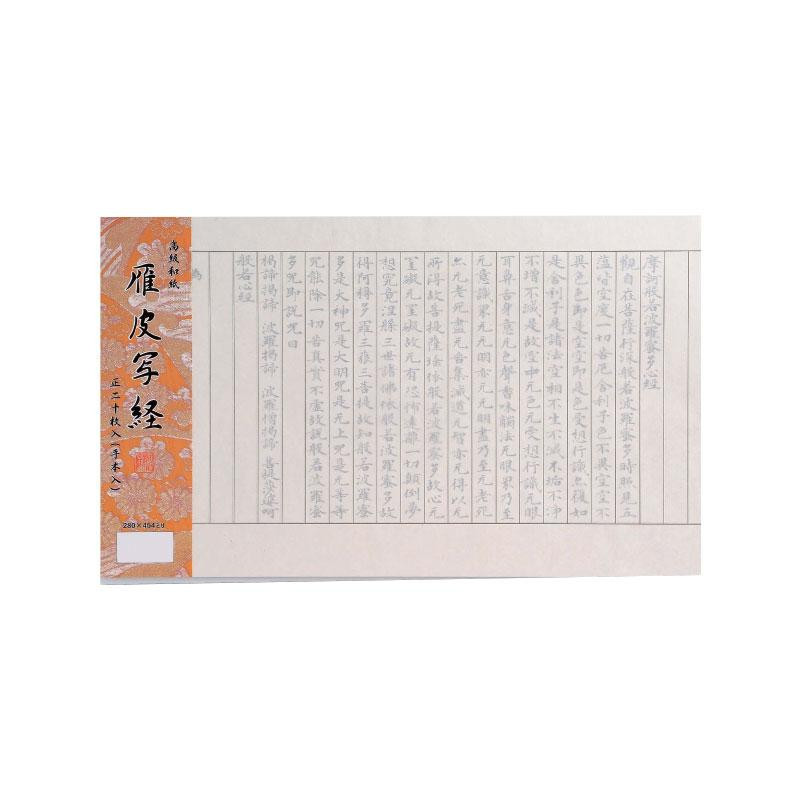 高級和紙
雁皮写経
正二十枚入(手本入)
280×454ミリ
摩訶般若波羅蜜多心経
觀自在菩薩行深般若波羅蜜多時照見五
蘊皆空度一切苦厄舍利子色不異空空不
異色色即是空空即是色受想行識亦復如
是舍利子是諸法空相不生不滅不垢不淨
不増不減是故空中无色无受想行識无眼
耳鼻舌身意无色聲香味觸法无眼界乃至
无意識界无无明亦无无明盡乃至无老死
亦无老死盡无苦集滅道无智亦无得以无
所得故菩提薩埵依般若波羅蜜多故心无
罣礙无罣礙故无有恐怖遠離一切顛倒夢
想究竟涅槃三世諸佛依般若波羅蜜多故
得阿耨多羅三藐三菩提故知般若波羅蜜
多是大神呪是大明呪是无上呪是无等等
呪能除一切苦真實不虚故説般若波羅蜜
多呪即説呪曰
揭諦揭諦 波羅揭諦 波羅僧揭諦 菩提莎婆呵
般若心経
為